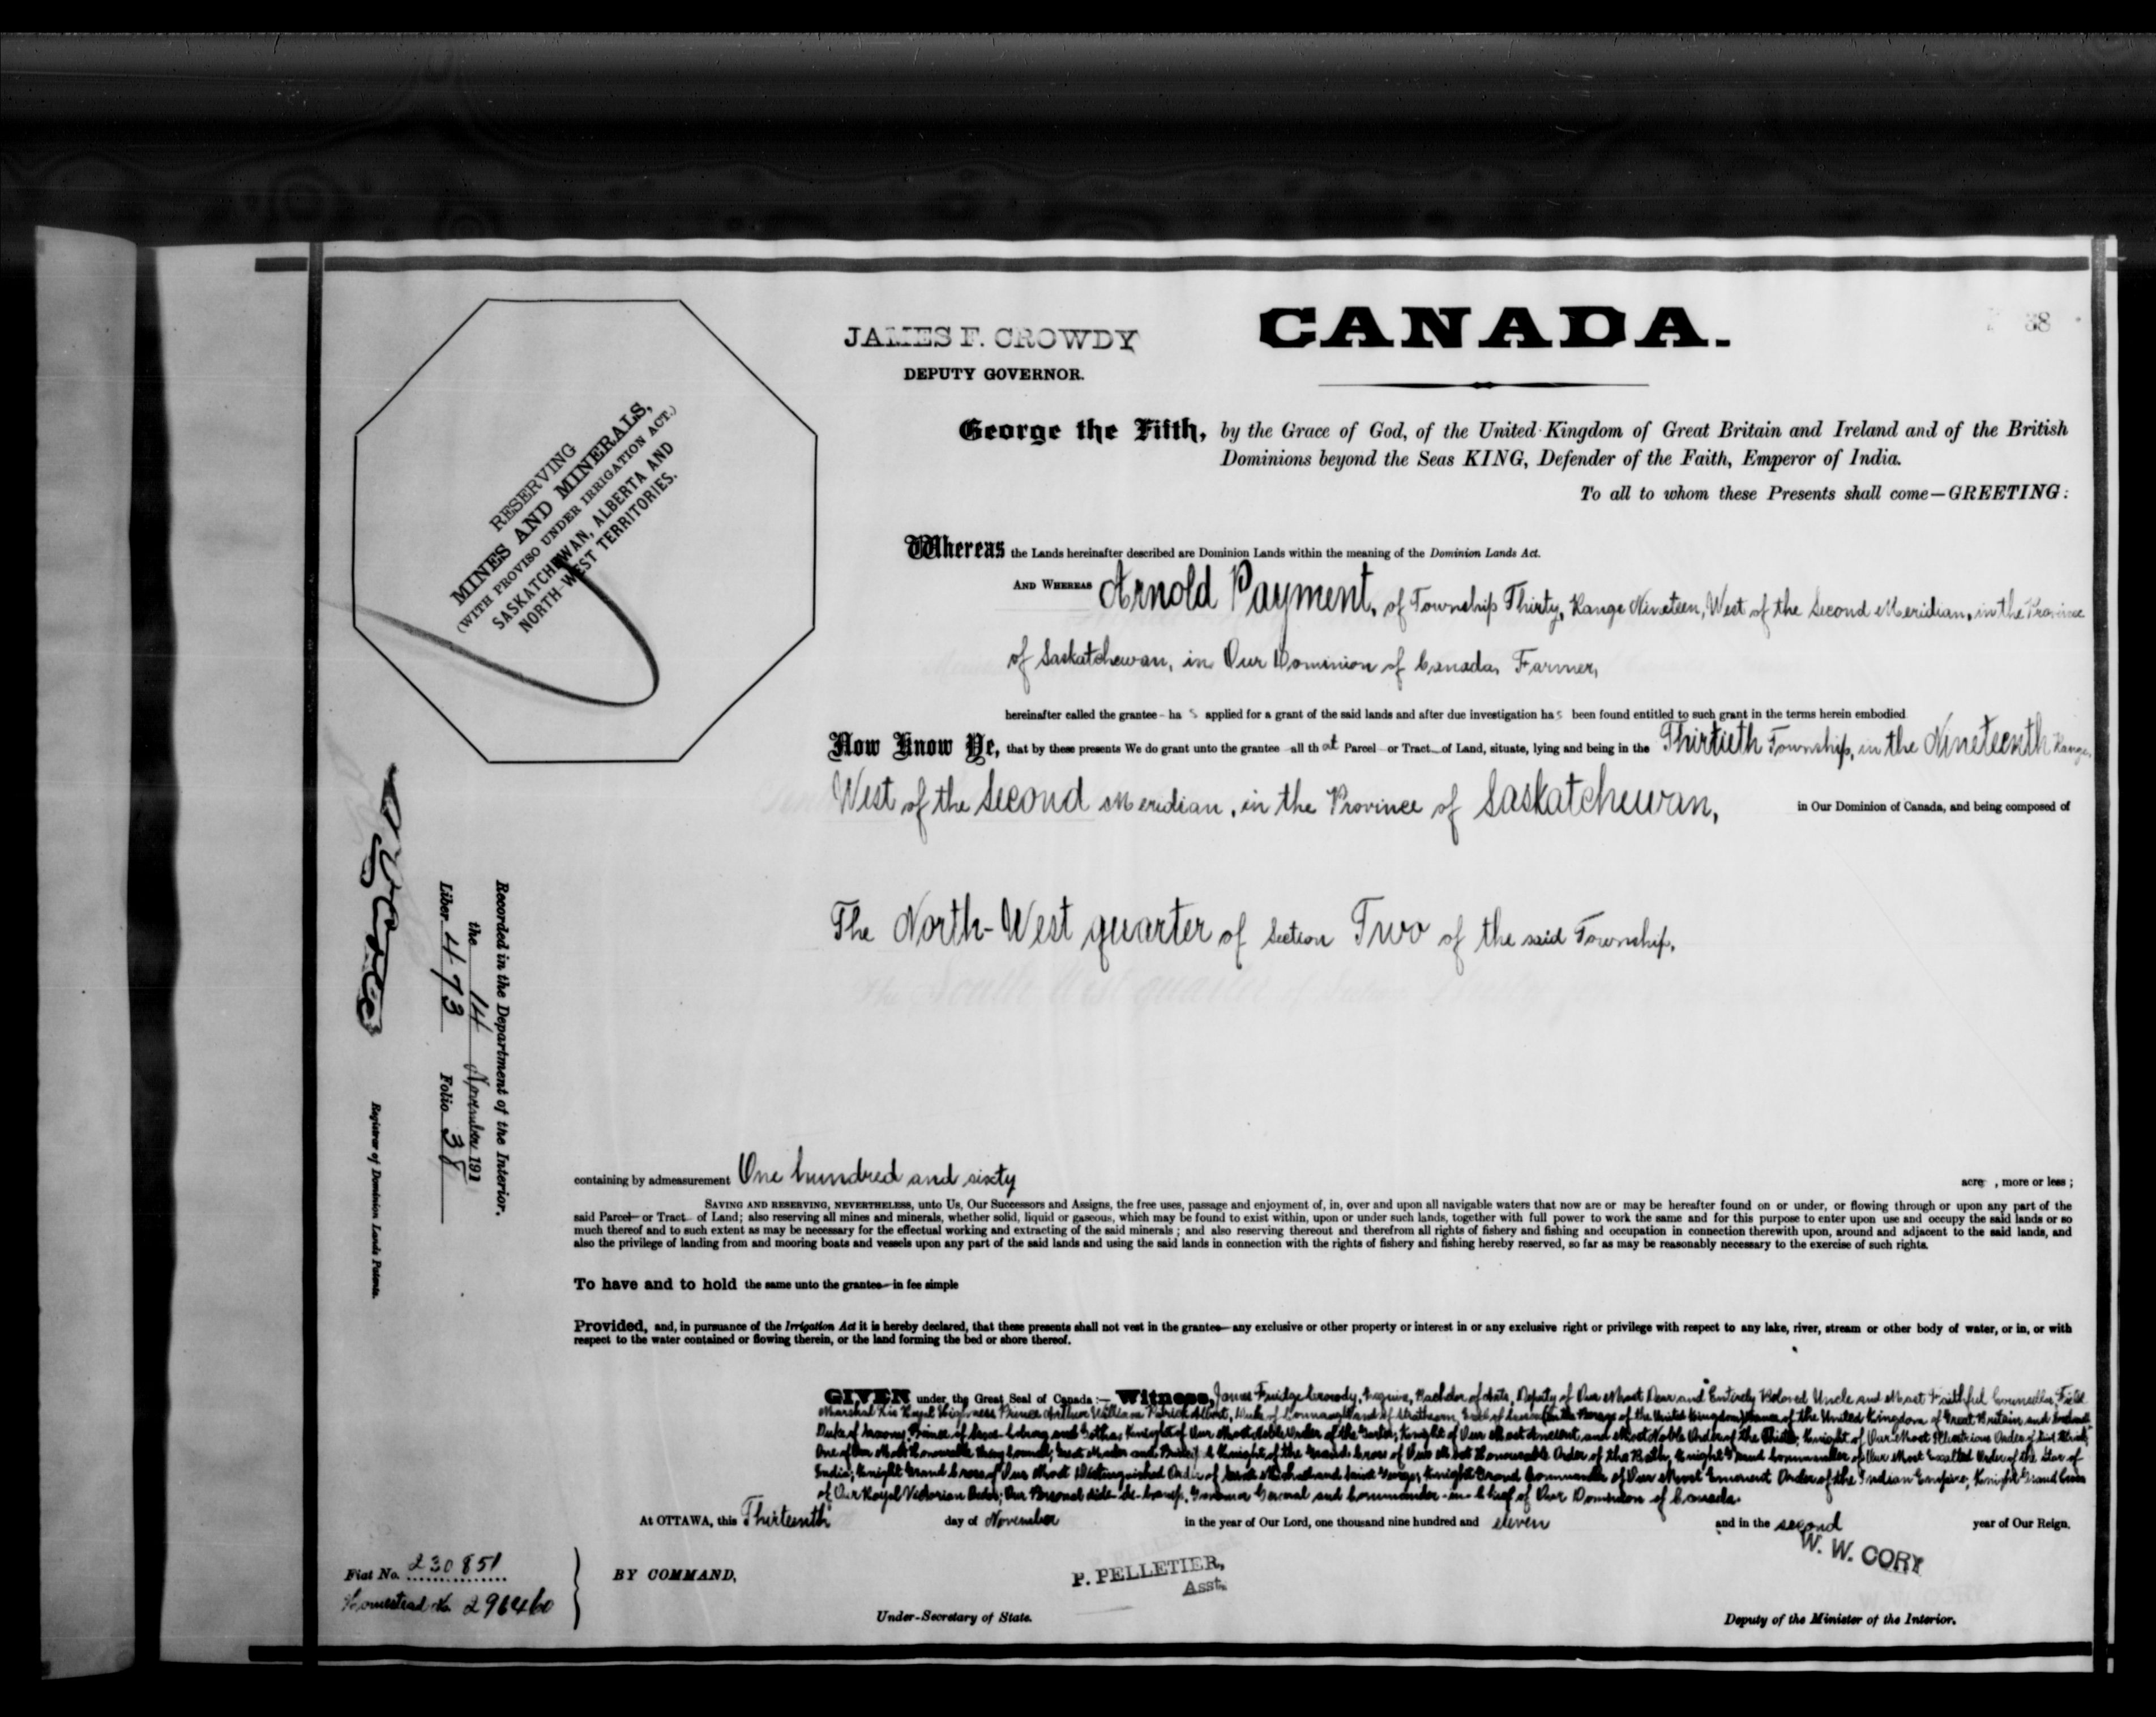 JAMES F. CROWDY
DEPUTY GOVERNOR.
CANADA.
38
RESERVING
MINES AND MINERALS,
(WITH PROVISO UNDER IRRIGATION ACT.)
SASKATCHEWAN, ALBERTA AND
NORTH-WEST TERRITORIES.
George the Fifth, by the Grace of God, of the United Kingdom of Great Britain and Ireland and of the British
Dominions beyond the Seas KING, Defender of the Faith, Emperor of India.
To all to whom these Presents shall come—GREETING:
Whereas the Lands hereinafter described are Dominion Lands within the meaning of the Dominion Lands Act.
AND WHEREAS Arnold Payment, of Township Thirty, Range Nineteen, West of the Second Meridian, in the Province
of Saskatchewan, in Our Dominion of Canada, Farmer,
hereinafter called the grantee - ha s applied for a grant of the said lands and after due investigation has been found entitled to such grant in the terms herein embodied
Now Know Ye, that by these presents We do grant unto the grantee all that Parcel or Tract of Land, situate, lying and being in the Thirtieth Township, in the Nineteenth Range,
West of the Second Meridian, in the Province of Saskatchewan, in Our Dominion of Canada, and being composed of
The North-West quarter of Section Two of the said Township.
containing by admeasurement One hundred and sixty acre , more or less ;
SAVING AND RESERVING, NEVERTHELESS, unto Us, Our Successors and Assigns, the free uses, passage and enjoyment of, in, over and upon all navigable waters that now are or may be hereafter found on or under, or flowing through or upon any part of the
said Parcel or Tract of Land; also reserving all mines and minerals, whether solid, liquid or gaseous, which may be found to exist within, upon or under such lands, together with full power to work the same and for this purpose to enter upon use and occupy the said lands or so
much thereof and to such extent as may be necessary for the effectual working and extracting of the said minerals ; and also reserving thereout and therefrom all rights of fishery and fishing and occupation in connection therewith upon, around and adjacent to the said lands, and
also the privilege of landing from and mooring boats and vessels upon any part of the said lands and using the said lands in connection with the rights of fishery and fishing hereby reserved, so far as may be reasonably necessary to the exercise of such rights.
To have and to hold the same unto the grantee in fee simple
Provided, and, in pursuance of the Irrigation Act it is hereby declared, that these presents shall not vest in the grantee any exclusive or other property or interest in or any exclusive right or privilege with respect to any lake, river, stream or other body of water, or in, or with
respect to the water contained or flowing therein, or the land forming the bed or shore thereof.
GIVEN under the Great Seal of Canada :— Witness, James Fuidge Crowdy, Esquire, Bachelor of Arts, Deputy of Our Most Dear and Entirely Beloved Uncle and Most Faithful Counsellor, Field
Marshal His Royal Highness Prince Arthur William Patrick Albert, Duke of Connaught and of Strathearn, Earl of Sussex (in the Peerage of the United Kingdom) Prince of the United Kingdom of Great Britain and Ireland
Duke of Saxony, Prince of Saxe-Coburg and Gotha; Knight of Our Most Noble Order of the Garter; Knight of Our Most Ancient and Most Noble Order of the Thistle; Knight of Our Most Illustrious Order of Saint Patrick;
One of Our Most Honourable Privy Council; Great Master and Knight of the Grand Cross of Our Most Honourable Order of the Bath; Knight Grand Commander of Our Most Exalted Order of the Star of
India; Knight Grand Cross of Our Most Distinguished Order of Saint Michael and Saint George; Knight Grand Commander of Our Most Eminent Order of the Indian Empire; Knight Grand Cross
of Our Royal Victorian Order; Our Personal Aide-de-Camp, Governor General and Commander-in-Chief of Our Dominion of Canada.
At OTTAWA, this Thirteenth day of November in the year of Our Lord, one thousand nine hundred and eleven and in the second year of Our Reign.
BY COMMAND,
P. PELLETIER,
Asst.
W. W. CORY
Under-Secretary of State.
Deputy of the Minister of the Interior.
Fiat No. 230851
Homestead No. 296460
Recorded in the Department of the Interior.
the 14 November 1911
Liber 473 Folio 38
Registrar of Dominion Lands Patents.